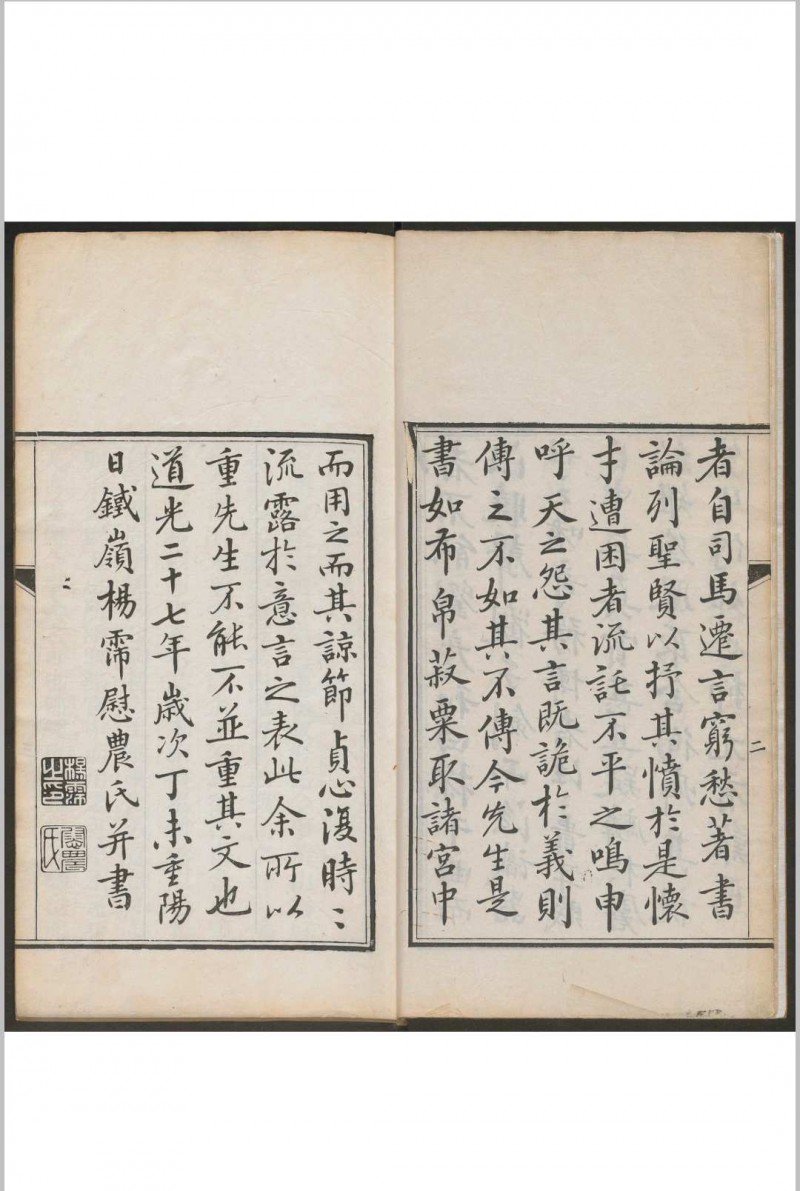 者自司馬遷言窮愁著書
論列聖賢以抒其憤於是懷
才遭困者流託不平之鳴申
呼天之怨其言既詭於義則
傳之不如其不傳今先生是
書如布帛菽粟取諸宮中
二
而用之而其諒節貞心復時〻
流露於意言之表此余所以
重先生不能不並重其文也
道光二十七年歲次丁未重陽
日鐵嶺楊霈慰農氏并書
楊霈之印
慰農氏